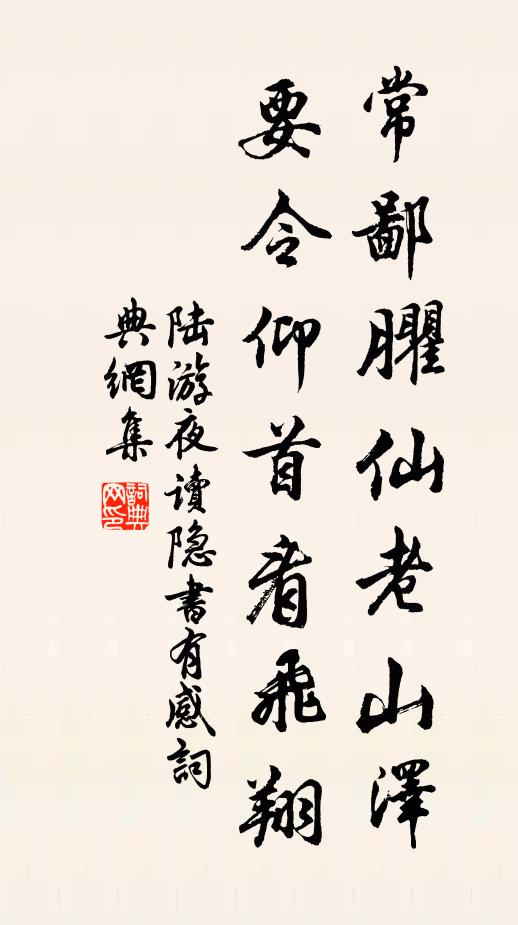 常鄙臞仙老山澤
要令仰首看飛翔
陆游夜读隐書有感詞
典網集
詞典网印